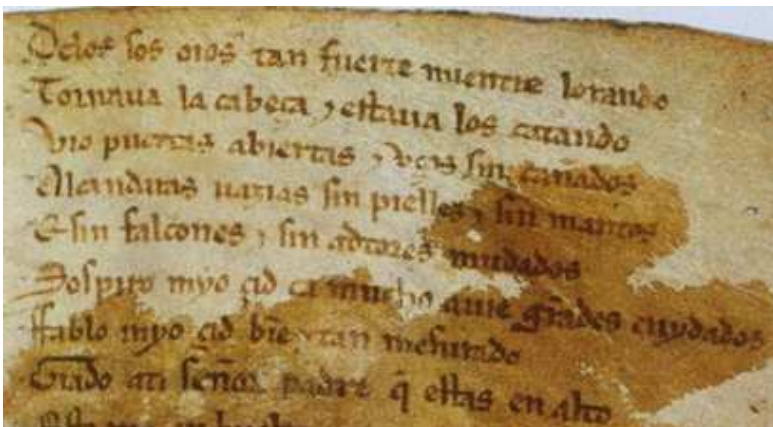 Delos sos oios tan fuerte mientre lorando
Tornaua la cabeça ⁊ estaua los catando
Vio puertas abiertas ⁊ vços sin cañados
Alcandaras uazias sin pielles ⁊ sin mantos
E sin falcones ⁊ sin adtores mudados
Sospiro myo çid ca mucho auie grãdes cuydados
ffablo myo çid biẽ ⁊ tan mesurado
Grado ati señor padre q̃ estas en alto